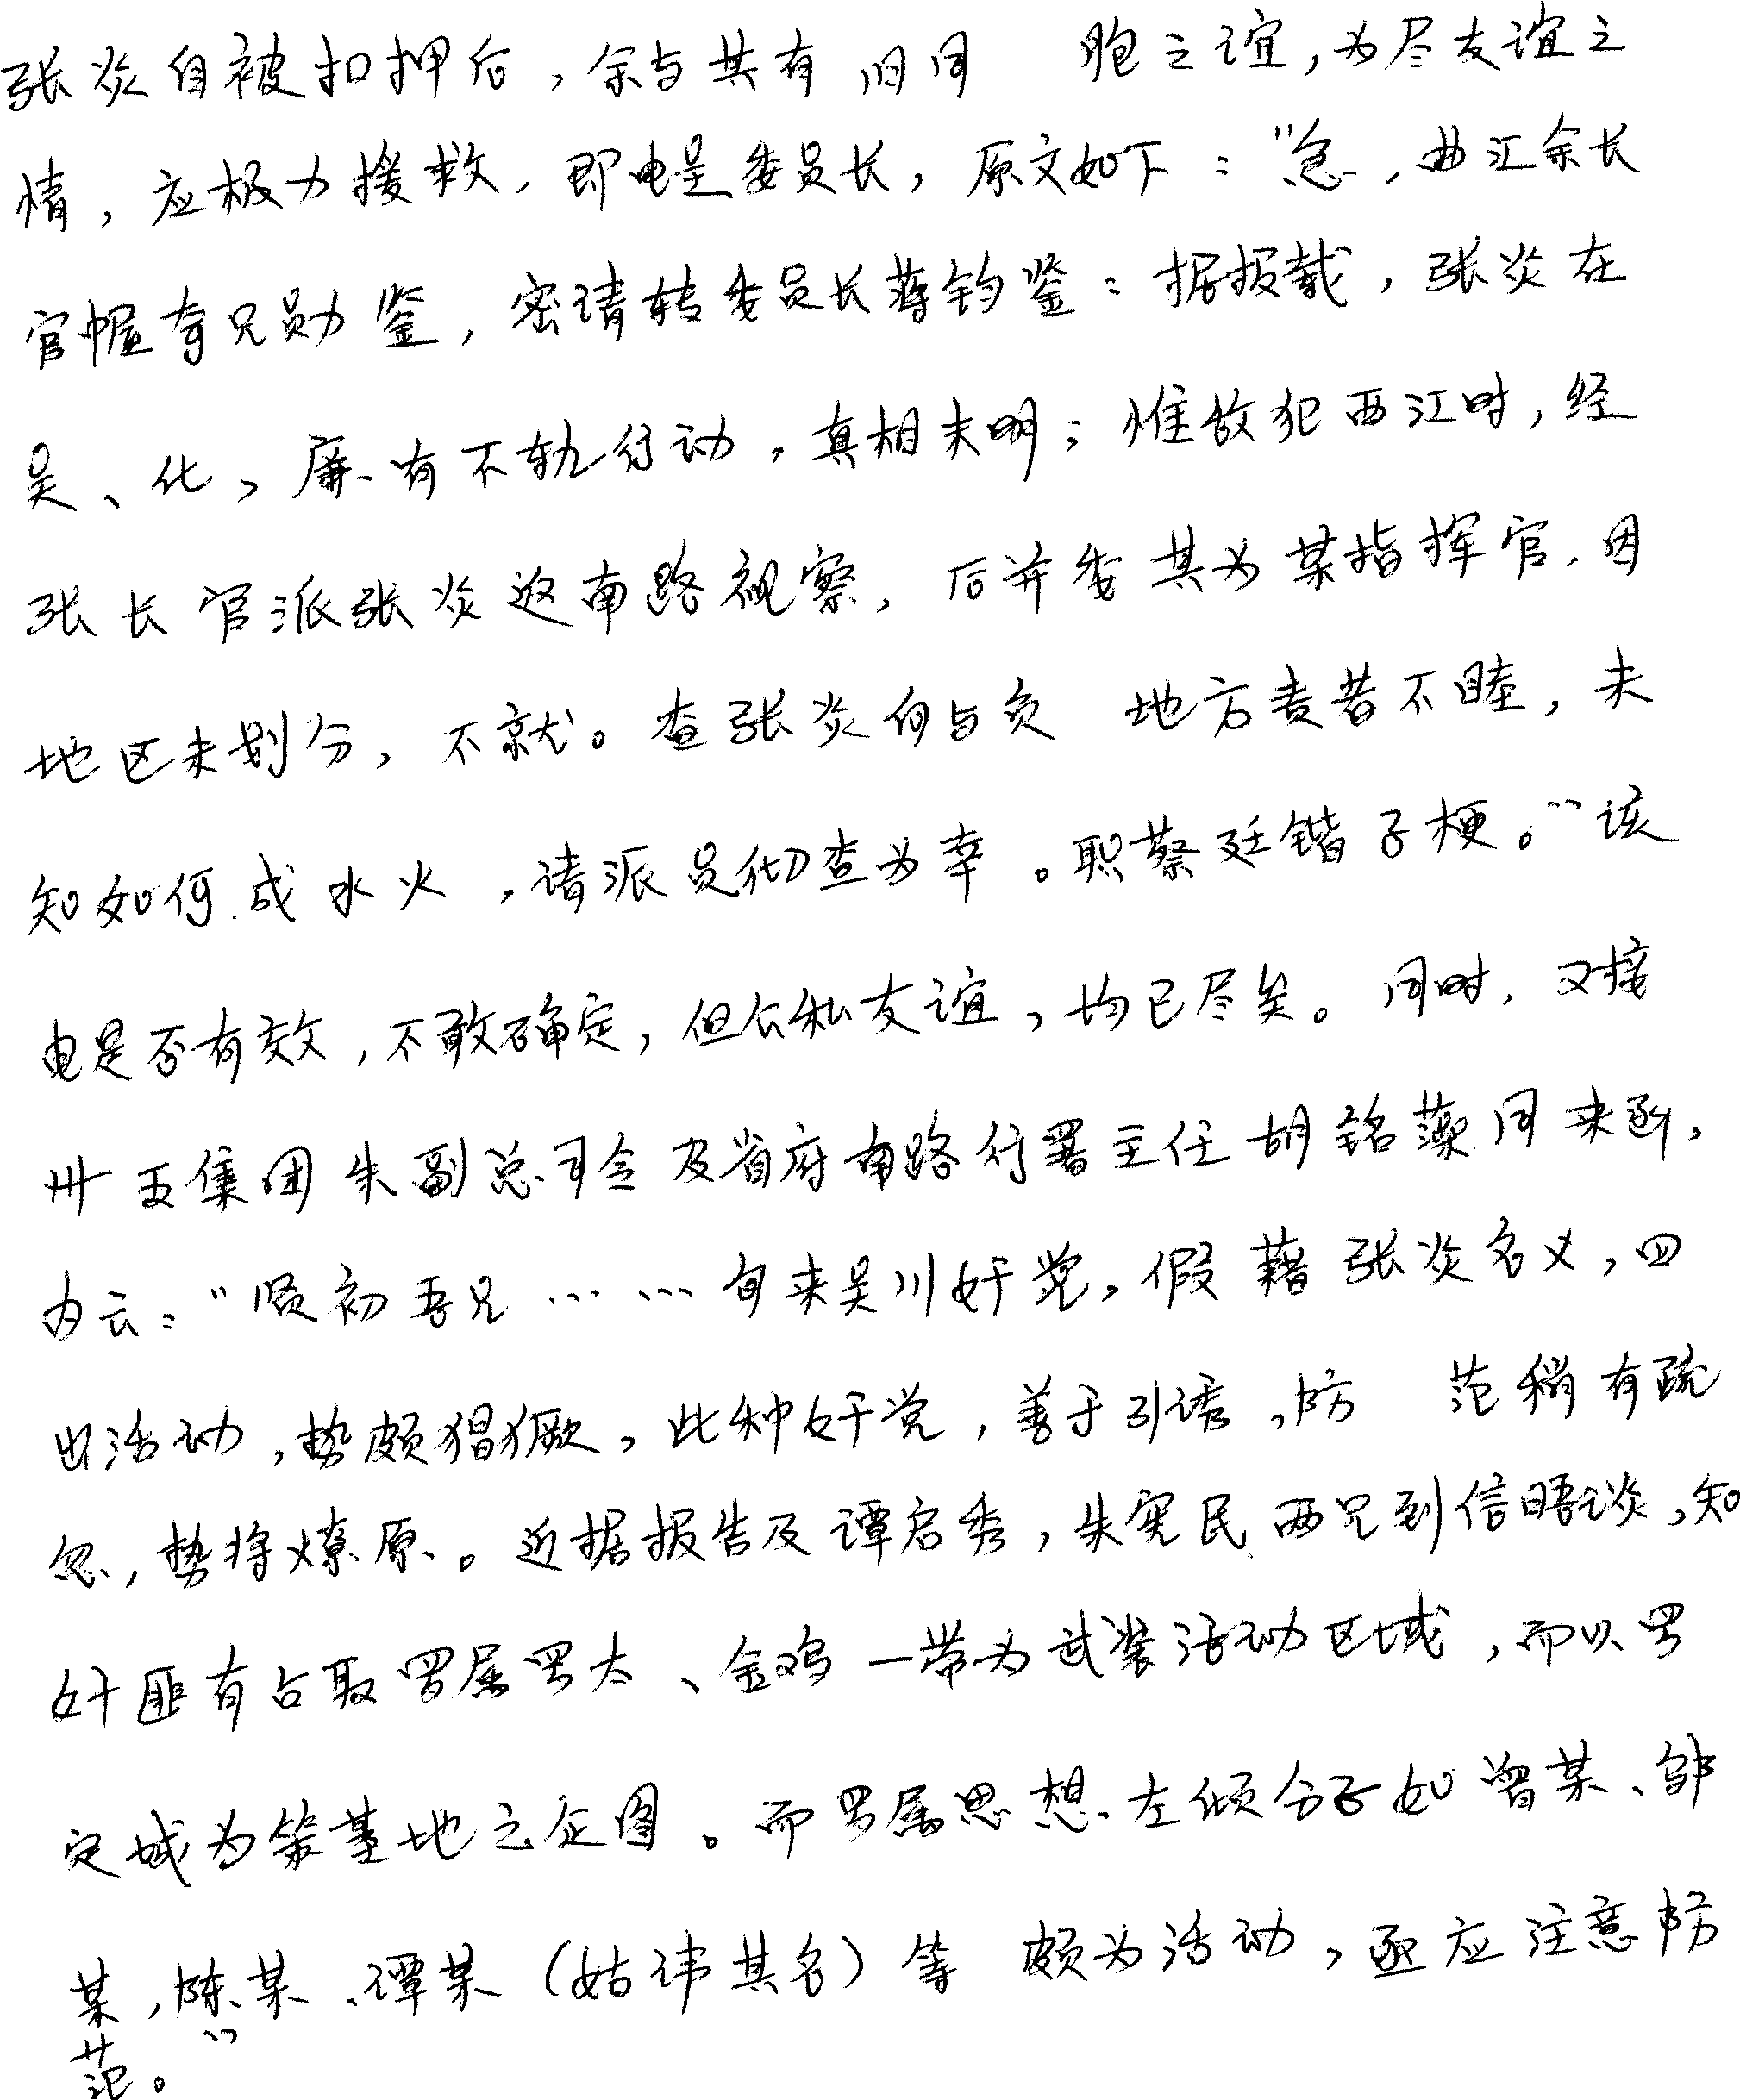 张炎自被扣押后，余与其有旧同胞之谊，为尽友谊之
情，应极力援救，即电呈委员长，原文如下：“急，曲江余长
官幄奇兄勋鉴，密请转委员长蒋钧鉴：据报载，张炎在
吴、化、廉有不轨行动，真相未明；惟敌犯西江时，经
张长官派张炎返南路视察，后并委其为某指挥官，因
地区未划分，不就。查张炎何与负地方责者不睦，未
知如何成水火，请派员彻查为幸。职蔡廷锴子梗。”该
电是否有效，不敢确定，但公私友谊，均已尽矣。同时，又接
卅五集团朱副总司令及省府南路行署主任胡铭藻同来函，
内云：“贤初吾兄……旬来吴川奸党，假藉张炎名义，四
出活动，势颇猖獗，此种奸党，善于引诱，防范稍有疏
忽，势将燎原。近据报告及谭启秀，朱宪民两兄到信晤谈，知
奸匪有占取罗属罗太、金鸡一带为武装活动区域，而以罗
定城为策基地之企图。而罗属思想左倾分子如曾某、邹
某，陈某、谭某（姑讳其名）等颇为活动，亟应注意防
范。”